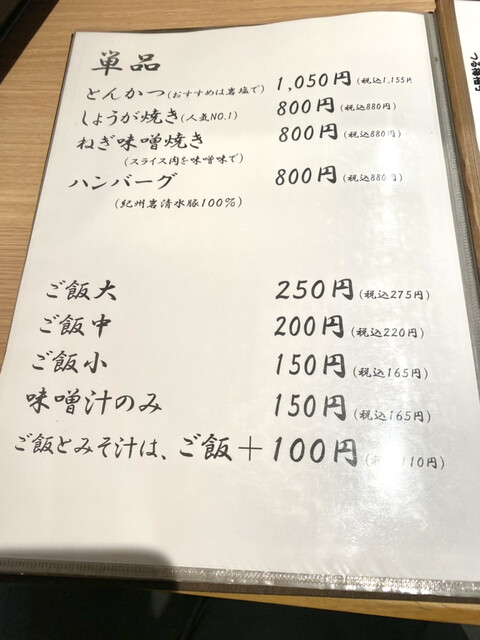 単品
とんかつ(おすすめは岩塩で) 1,050円(税込1,155円
しょうが焼き(人気NO.1) 800円(税込880円)
ねぎ味噌焼き 800円(税込880円)
(スライス肉を味噌味で)
ハンバーグ 800円(税込880円)
(紀州岩清水豚100%)
ご飯大 250円(税込275円)
ご飯中 200円(税込220円)
ご飯小 150円(税込165円)
味噌汁のみ 150円(税込165円)
ご飯とみそ汁は、ご飯+100円( 110円)